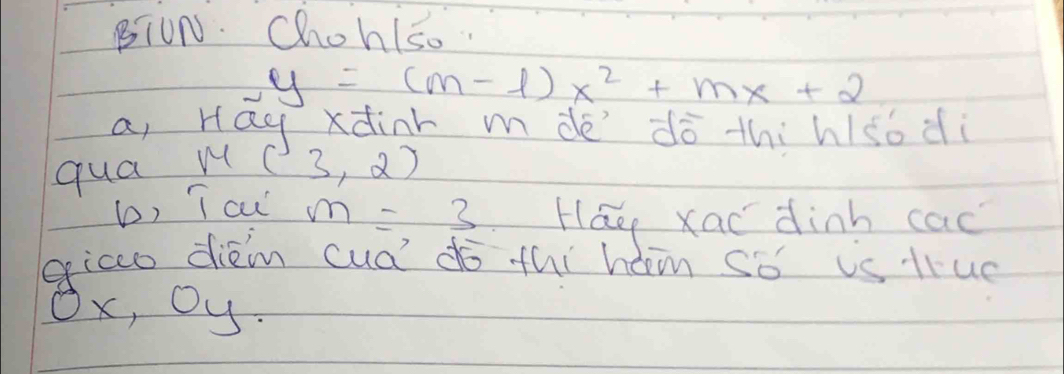 BTVN. Cho h/số:
y = (m-1)x² + mx + 2
a, Hãy xđịnh m để đồ thị h/số đi
qua M (3,2)
b, Tại m = 3. Hãy xác định các
giao điểm của đồ thị hàm số vs trục
Ox, Oy.